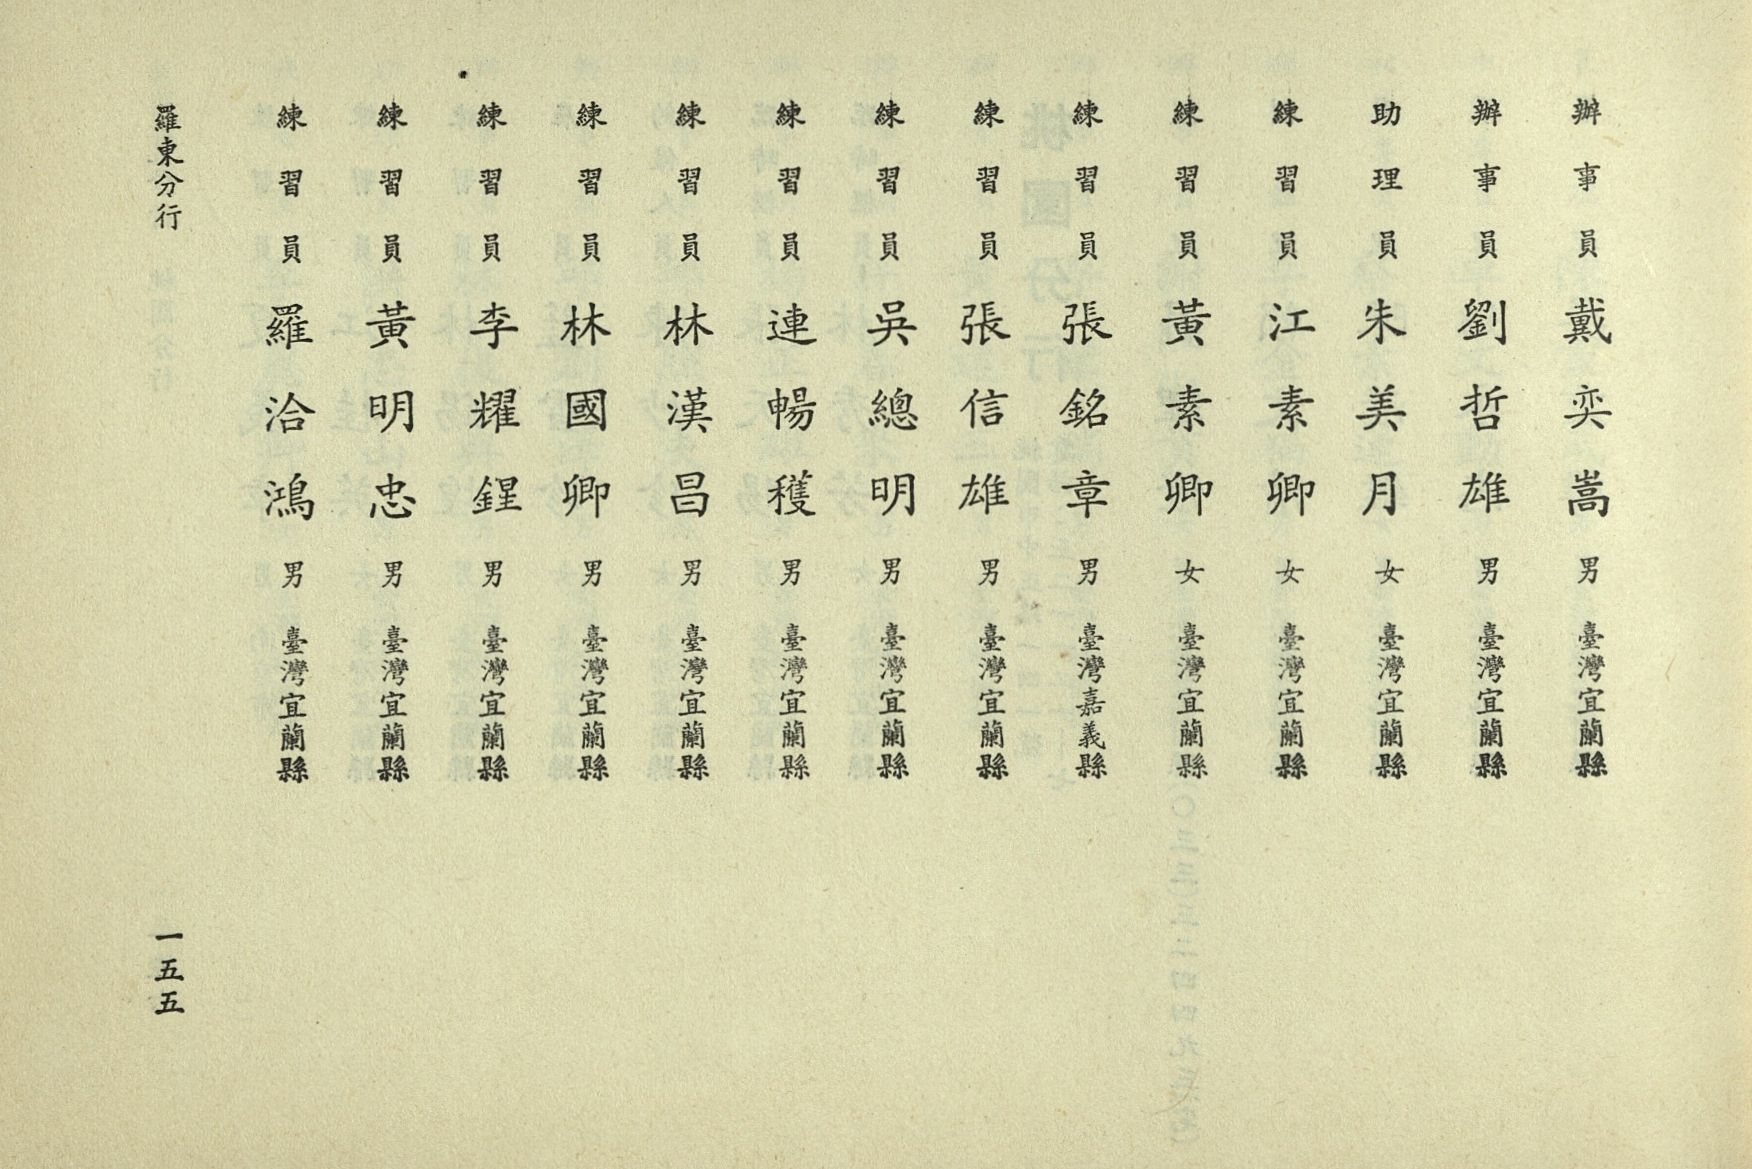 辦事員戴奕嵩男臺灣宜蘭縣
辦事員劉哲雄男臺灣宜蘭縣
助理員朱美月女臺灣宜蘭縣
練習員江素卿女臺灣宜蘭縣
練習員黃素卿女臺灣宜蘭縣
練習員張銘章男臺灣嘉義縣
練習員張信雄男臺灣宜蘭縣
練習員吳總明男臺灣宜蘭縣
練習員連暢穫男臺灣宜蘭縣
練習員林漢昌男臺灣宜蘭縣
練習員林國卿男臺灣宜蘭縣
練習員李耀鋥男臺灣宜蘭縣
練習員黃明忠男臺灣宜蘭縣
練習員羅洽鴻男臺灣宜蘭縣
羅東分行
一五五